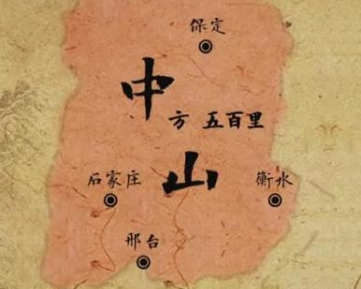 保定
中
方 五百里
石家庄
山
衡水
邢台